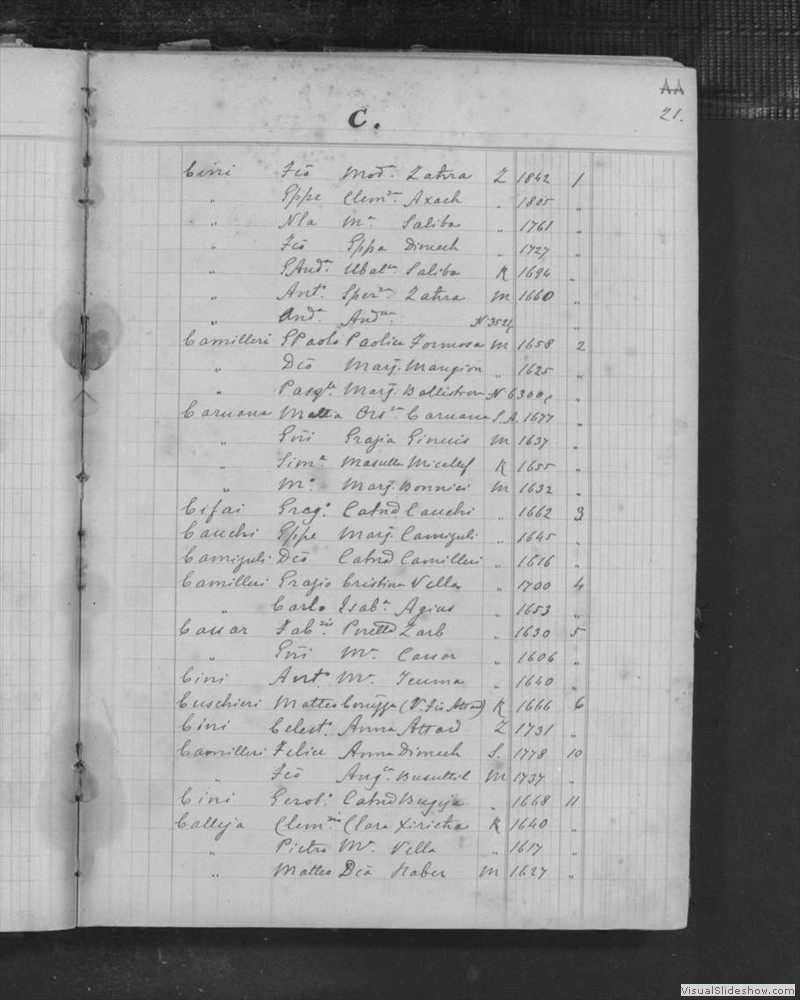 AA
21.
C.
Cini Fco Modᵃ. Zahra Z 1842 1
„ Gppe Clemᶻᵃ. Axach „ 1805 „
„ Nla Mᵃ Saliba „ 1761 „
„ Fco Gppa Dimech „ 1727 „
„ GAndᵃ. Ubalᵃ. Saliba K 1694 „
„ Antᵒ Sperᶻᵃ Zahra M 1660 „
„ Andᵃ Andᵐᵃ. N 352 „
Camilleri GPaolo Paolica Formosa M 1658 2
„ Dco Marg. Mangion „ 1625 „
„ Pasqˡᵉ Marg. Ballistrera N 6300 „
Caruana Matteo Orsᶻᵃ Caruana S.A. 1677 „
„ Gñi Grazia Gimis M 1637 „
„ Simᵉ Masulla Micallef K 1655 „
„ Mᵒ. Marg. Bonnici M 1632 „
Cifai Gregᵒ Catnd Cauchi „ 1662 3
Cauchi Gppe Marg. Camiguli „ 1645 „
Camiguli Dco Catnd Camilleri „ 1616 „
Camilleri Grazio Cristina Vella „ 1700 4
„ Carlo Isabᵃ. Agius „ 1653 „
Cassar Fabᶻⁱᵒ Peretta Zarb „ 1630 5
„ Gñi Mᵃ. Cassar „ 1606 „
Cini Antᵒ Mᵃ. Teuma „ 1640 „
Cuschieri Matteo (V. Fco Attard) K 1666 6
Cini Celestᵒ. Anna Attard Z 1731 „
Camilleri Felice Anna Dimech S. 1778 10
„ Fco Angᶜᵃ Busuttil M 1737 „
Cini Gerolᵒ Catnd Bugeja „ 1668 11
Calleja Clemᶻᵒ Clara Xiricha K 1640 „
„ Pietro Mᵃ. Vella „ 1617 „
„ Matteo Dca Haber M 1627 „
VisualSlideshow.com